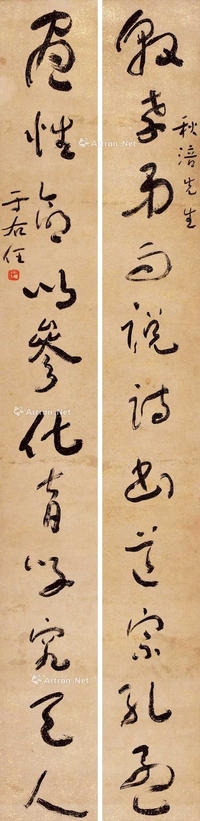 敦孝弟而說詩書道宗孔孟
秋涪先生
盡性命以參化育學究天人
于右任
Artron.Net